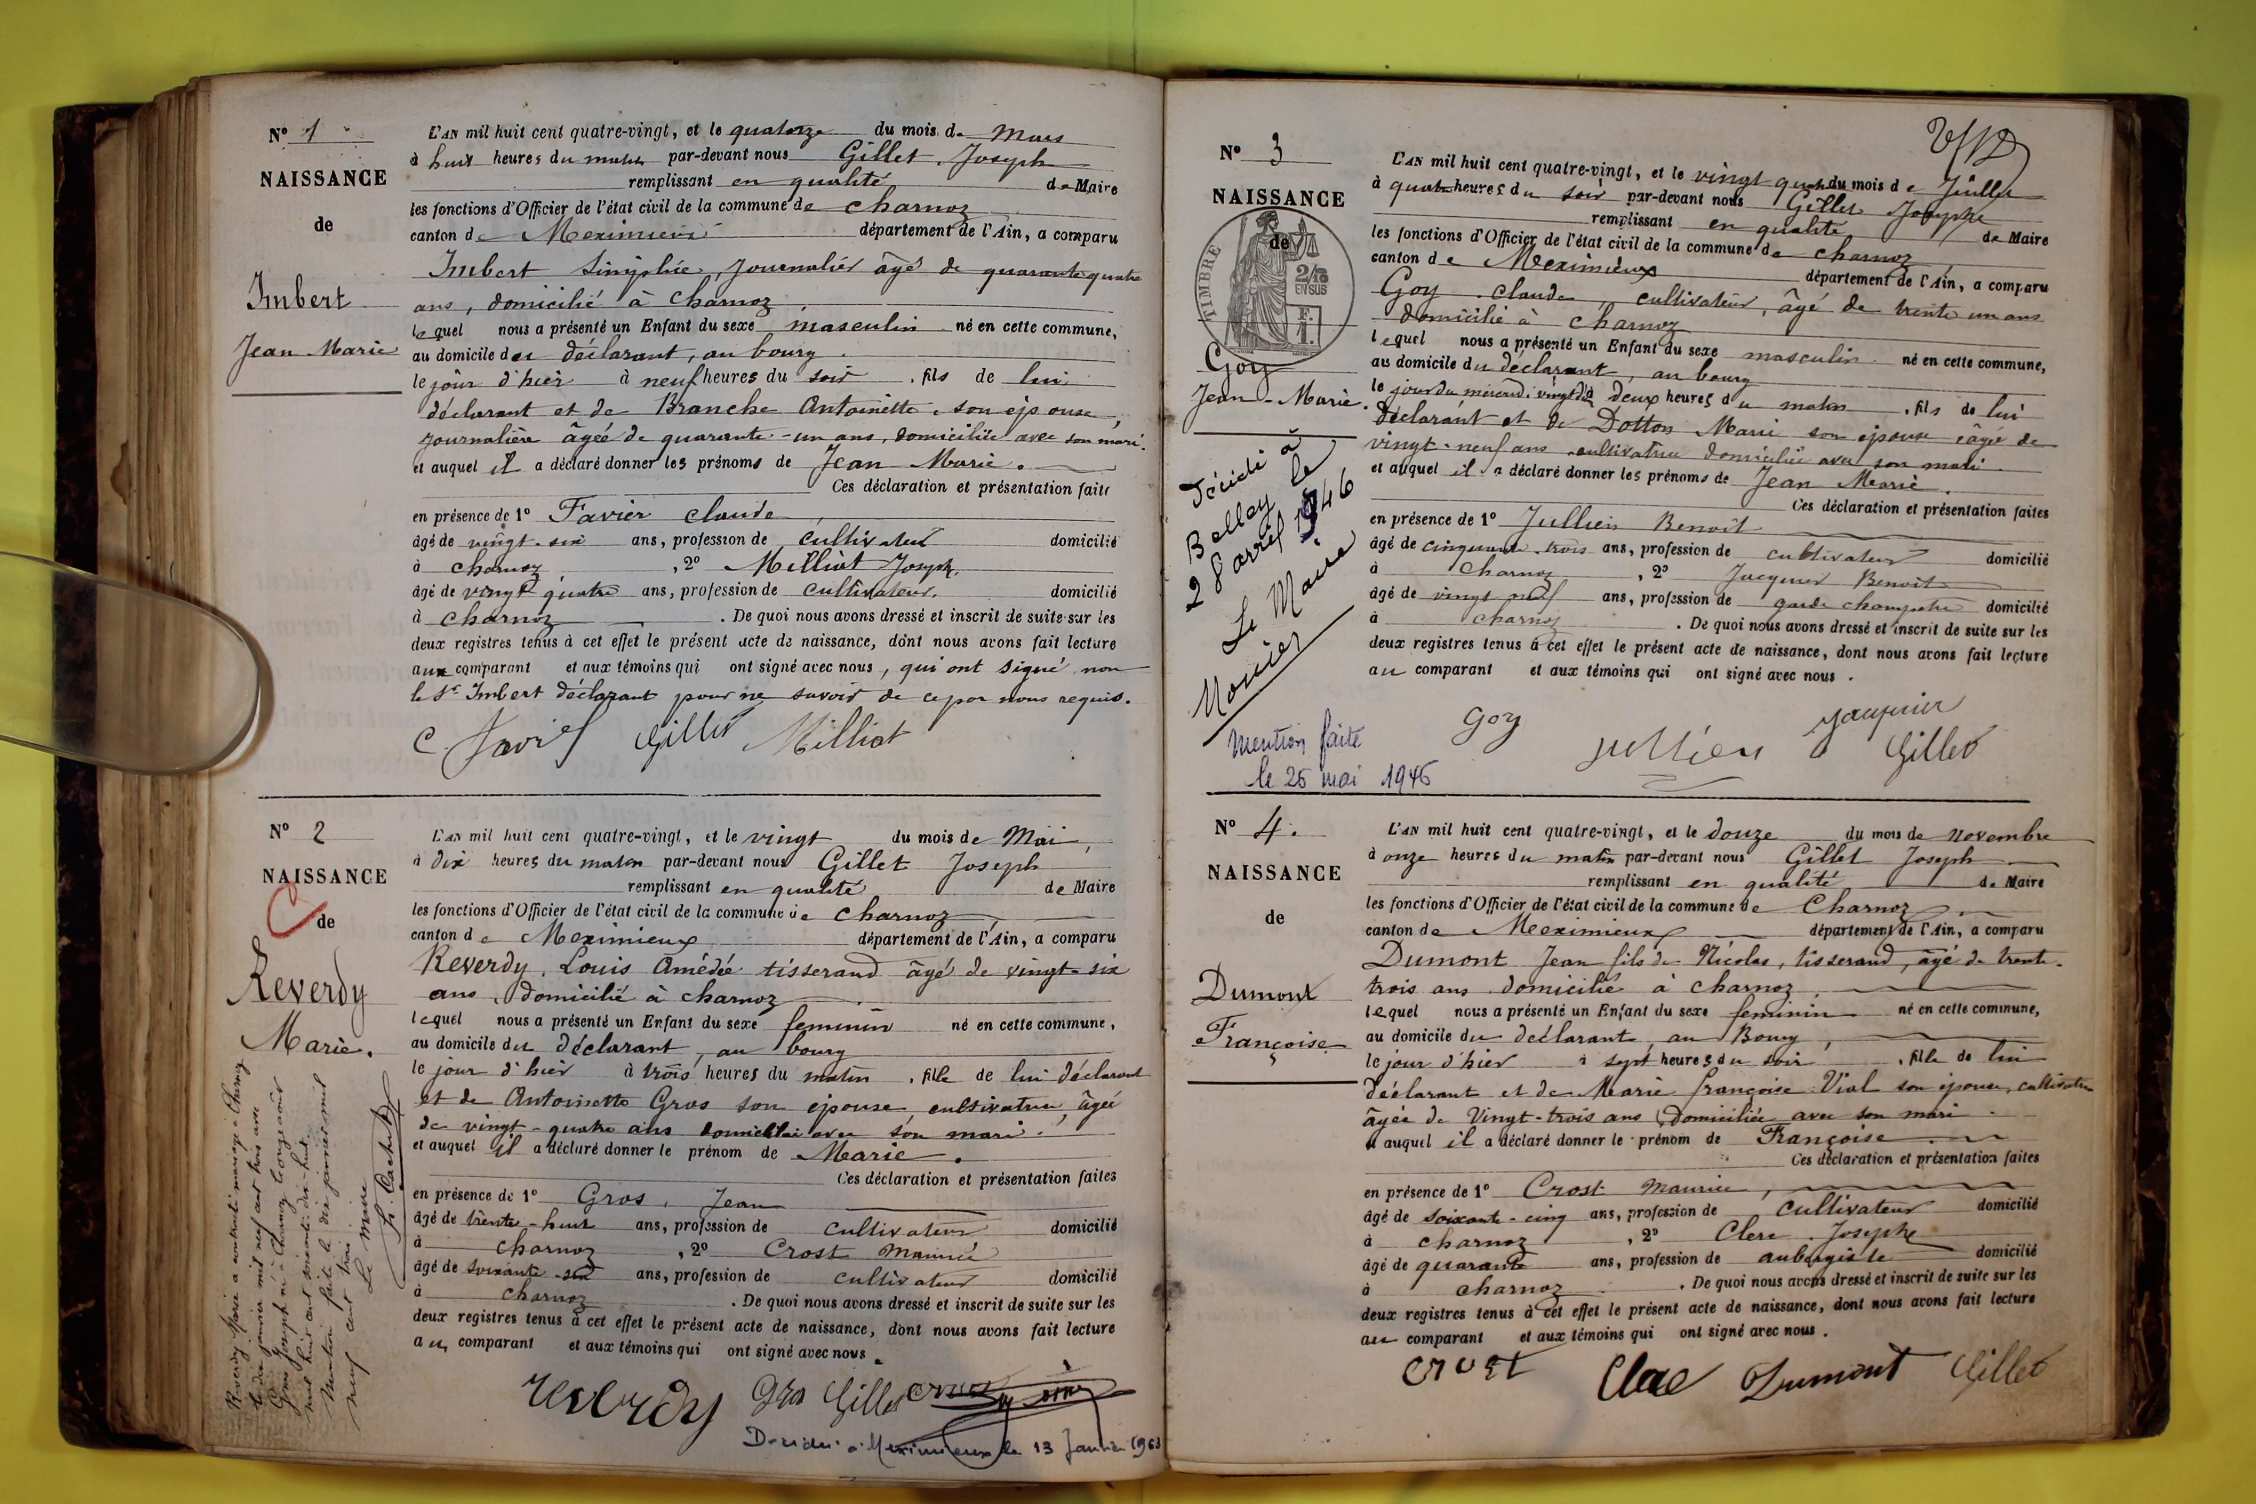 N° 1
NAISSANCE
de
Imbert
Jean Marie
L'AN mil huit cent quatre-vingt, et le quatorze du mois de Mars
à huit heures du matin par-devant nous Gillet Joseph
remplissant en qualité de Maire
les fonctions d'Officier de l'état civil de la commune de Charnoz
canton de Meximieux département de l'Ain, a comparu
Imbert , journalier âgé de quarante quatre
ans, domicilié à Charnoz
lequel nous a présenté un Enfant du sexe masculin né en cette commune,
au domicile du déclarant, au bourg.
le jour d'hier à neuf heures du soir , fils de lui
déclarant et de Branche Antoinette son épouse,
journalière âgée de quarante-un ans, domiciliée avec son mari.
et auquel il a déclaré donner les prénoms de Jean Marie.
Ces déclaration et présentation faites
en présence de 1° Favier Claude
âgé de vingt-six ans, profession de cultivateur domicilié
à Charnoz , 2° Milliat Joseph,
âgé de vingt quatre ans, profession de cultivateur, domicilié
à Charnoz . De quoi nous avons dressé et inscrit de suite sur les
deux registres tenus à cet effet le présent acte de naissance, dont nous avons fait lecture
aux comparant et aux témoins qui ont signé avec nous, qui ont signé non
le Sr Imbert déclarant pour ne savoir de ce par nous requis.
C. Favier Gillet Milliat
N° 2
NAISSANCE
de
Reverdy
Marie.
Reverdy Marie a contracté mariage à Charnoz
le dix janvier mil neuf cent trois avec
Gros Joseph né à Charnoz le onze août
mil huit cent soixante-dix-huit.
Mention faite le dix janvier mil
neuf cent trois
Le Maire
L'AN mil huit cent quatre-vingt, et le vingt du mois de Mai,
à dix heures du matin par-devant nous Gillet Joseph
remplissant en qualité de Maire
les fonctions d'Officier de l'état civil de la commune de Charnoz
canton de Meximieux département de l'Ain, a comparu
Reverdy, Louis Amédée tisserand âgé de vingt-six
ans, domicilié à Charnoz
lequel nous a présenté un Enfant du sexe feminin né en cette commune,
au domicile du déclarant, au bourg
le jour d'hier à trois heures du matin , fille de lui déclarant
et de Antoinette Gros son épouse, cultivatrice, âgée
de vingt-quatre ans domiciliée avec son mari.
et auquel il a déclaré donner le prénom de Marie.
Ces déclaration et présentation faites
en présence de 1° Gros, Jean
âgé de trente-huit ans, profession de cultivateur domicilié
à Charnoz , 2° Crost Maurice
âgé de soixante-six ans, profession de cultivateur
à Charnoz . De quoi nous avons dressé et inscrit de suite sur les
deux registres tenus à cet effet le présent acte de naissance, dont nous avons fait lecture
au comparant et aux témoins qui ont signé avec nous.
reverdy Gros Gillet crost
Décédée à Meximieux le 13 Janvier 1963
N° 3
NAISSANCE
de
TIMBRE
2/10
EN SUS
F.
1.
Goy
Jean-Marie.
Décidé à
Belley le
28 avril 1946
Le Maire
Mention faite
le 25 mai 1946
L'AN mil huit cent quatre-vingt, et le vingt quatre du mois de Juillet
à quatre heures du soir par-devant nous Gillet Joseph
remplissant en qualité de Maire
les fonctions d'Officier de l'état civil de la commune de Charnoz
canton de Meximieux département de l'Ain, a comparu
Goy Claude, cultivateur, âgé de trente un ans
domicilié à Charnoz
lequel nous a présenté un Enfant du sexe masculin né en cette commune,
au domicile du déclarant, au bourg
le jour du deux heures du matin , fils de lui
déclarant et de Dotton Marie son épouse âgée de
vingt-neuf ans cultivatrice domiciliée avec son mari.
et auquel il a déclaré donner les prénoms de Jean Marie.
Ces déclaration et présentation faites
en présence de 1° Jullien Benoit
âgé de cinquante-trois ans, profession de cultivateur domicilié
à Charnoz , 2° Jacquier Benoit
âgé de vingt neuf ans, profession de garde champêtre domicilié
à Charnoz . De quoi nous avons dressé et inscrit de suite sur les
deux registres tenus à cet effet le présent acte de naissance, dont nous avons fait lecture
au comparant et aux témoins qui ont signé avec nous.
Goy Jullien Jacquier Gillet
N° 4.
NAISSANCE
de
Dumont
Françoise
L'AN mil huit cent quatre-vingt, et le douze du mois de novembre
à onze heures du matin par-devant nous Gillet Joseph
remplissant en qualité de Maire
les fonctions d'Officier de l'état civil de la commune de Charnoz
canton de Meximieux département de l'Ain, a comparu
Dumont Jean fils de Nicolas, tisserand, âgé de trente-
trois ans domicilié à Charnoz
lequel nous a présenté un Enfant du sexe feminin né en cette commune,
au domicile du déclarant, au Bourg,
le jour d'hier à sept heures du soir , fille de lui
déclarant et de Marie françoise Vial son épouse, cultivatrice
âgée de Vingt-trois ans domiciliée avec son mari.
et auquel il a déclaré donner le prénom de Françoise
Ces déclaration et présentation faites
en présence de 1° Crost Maurice,
âgé de soixante-cinq ans, profession de cultivateur domicilié
à Charnoz , 2° Clerc Josephe
âgé de quarante ans, profession de aubergiste domicilié
à Charnoz . De quoi nous avons dressé et inscrit de suite sur les
deux registres tenus à cet effet le présent acte de naissance, dont nous avons fait lecture
au comparant et aux témoins qui ont signé avec nous.
crost Clerc Dumont Gillet